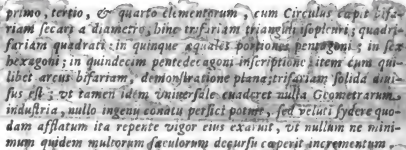 primo, tertio, & quarto elementorum, cum Circulus cæpit bifa-
riam secari a diametro, hinc trifariam trianguli isopleuri; quadri-
fariam quadrati: in quinque æquales portiones pentagoni; in sex
hexagoni; in quindecim pentedecagoni inscriptione: item cum qui-
libet arcus bifariam, demonstratione plana; trifariam solida divi-
sus est; vt tamen idem vniuersale cuaderet nulla Geometrarum
industria, nullo ingenij conatu perfici potuit, sed veluti sydere quo-
dam afflatum ita repente vigor eius exaruit, vt nullum ne mini-
mum quidem multorum sæculorum decursu cæperit incrementum,